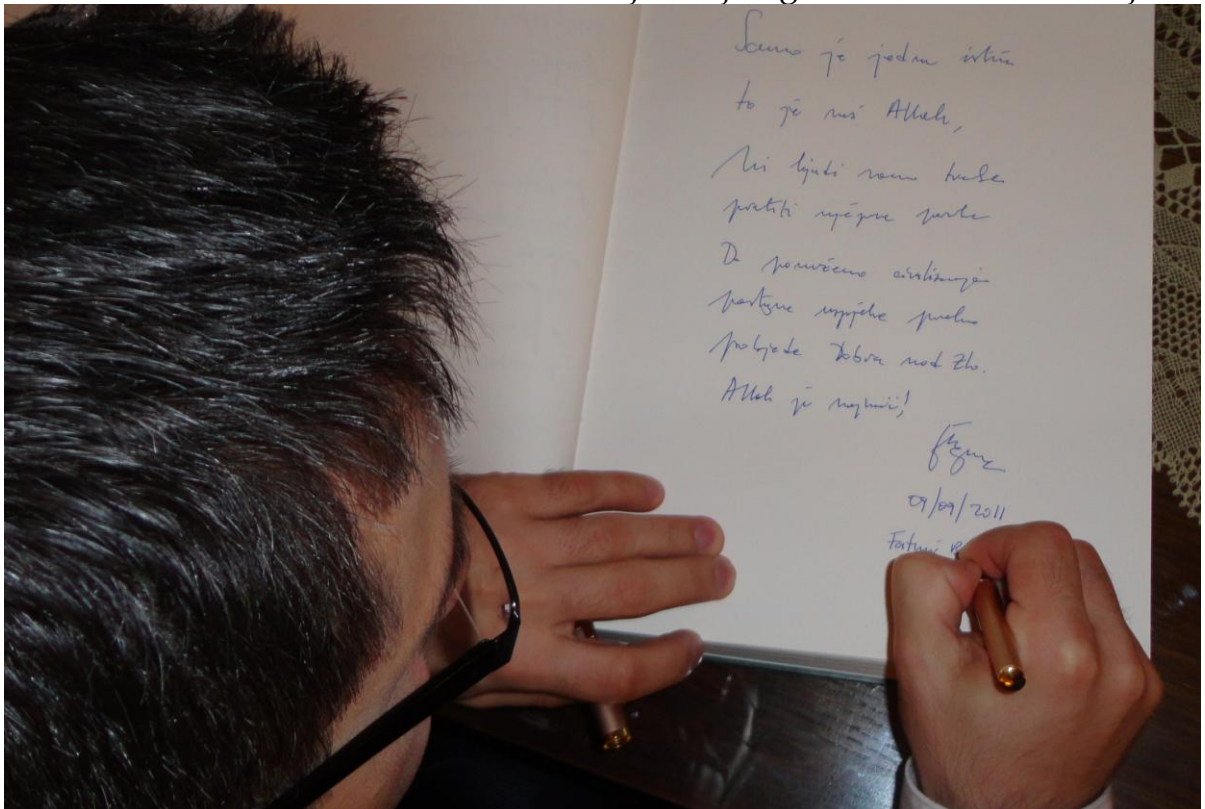 Samo je jedna istina
to je naš Allah,
Mi ljudi samo treba
pratiti njegove
Da pomažemo civilizacija
postigne uspjehe
pobjeda Dobra nad Zlo.
Allah je najveći!
09/09/2011
Fatmir